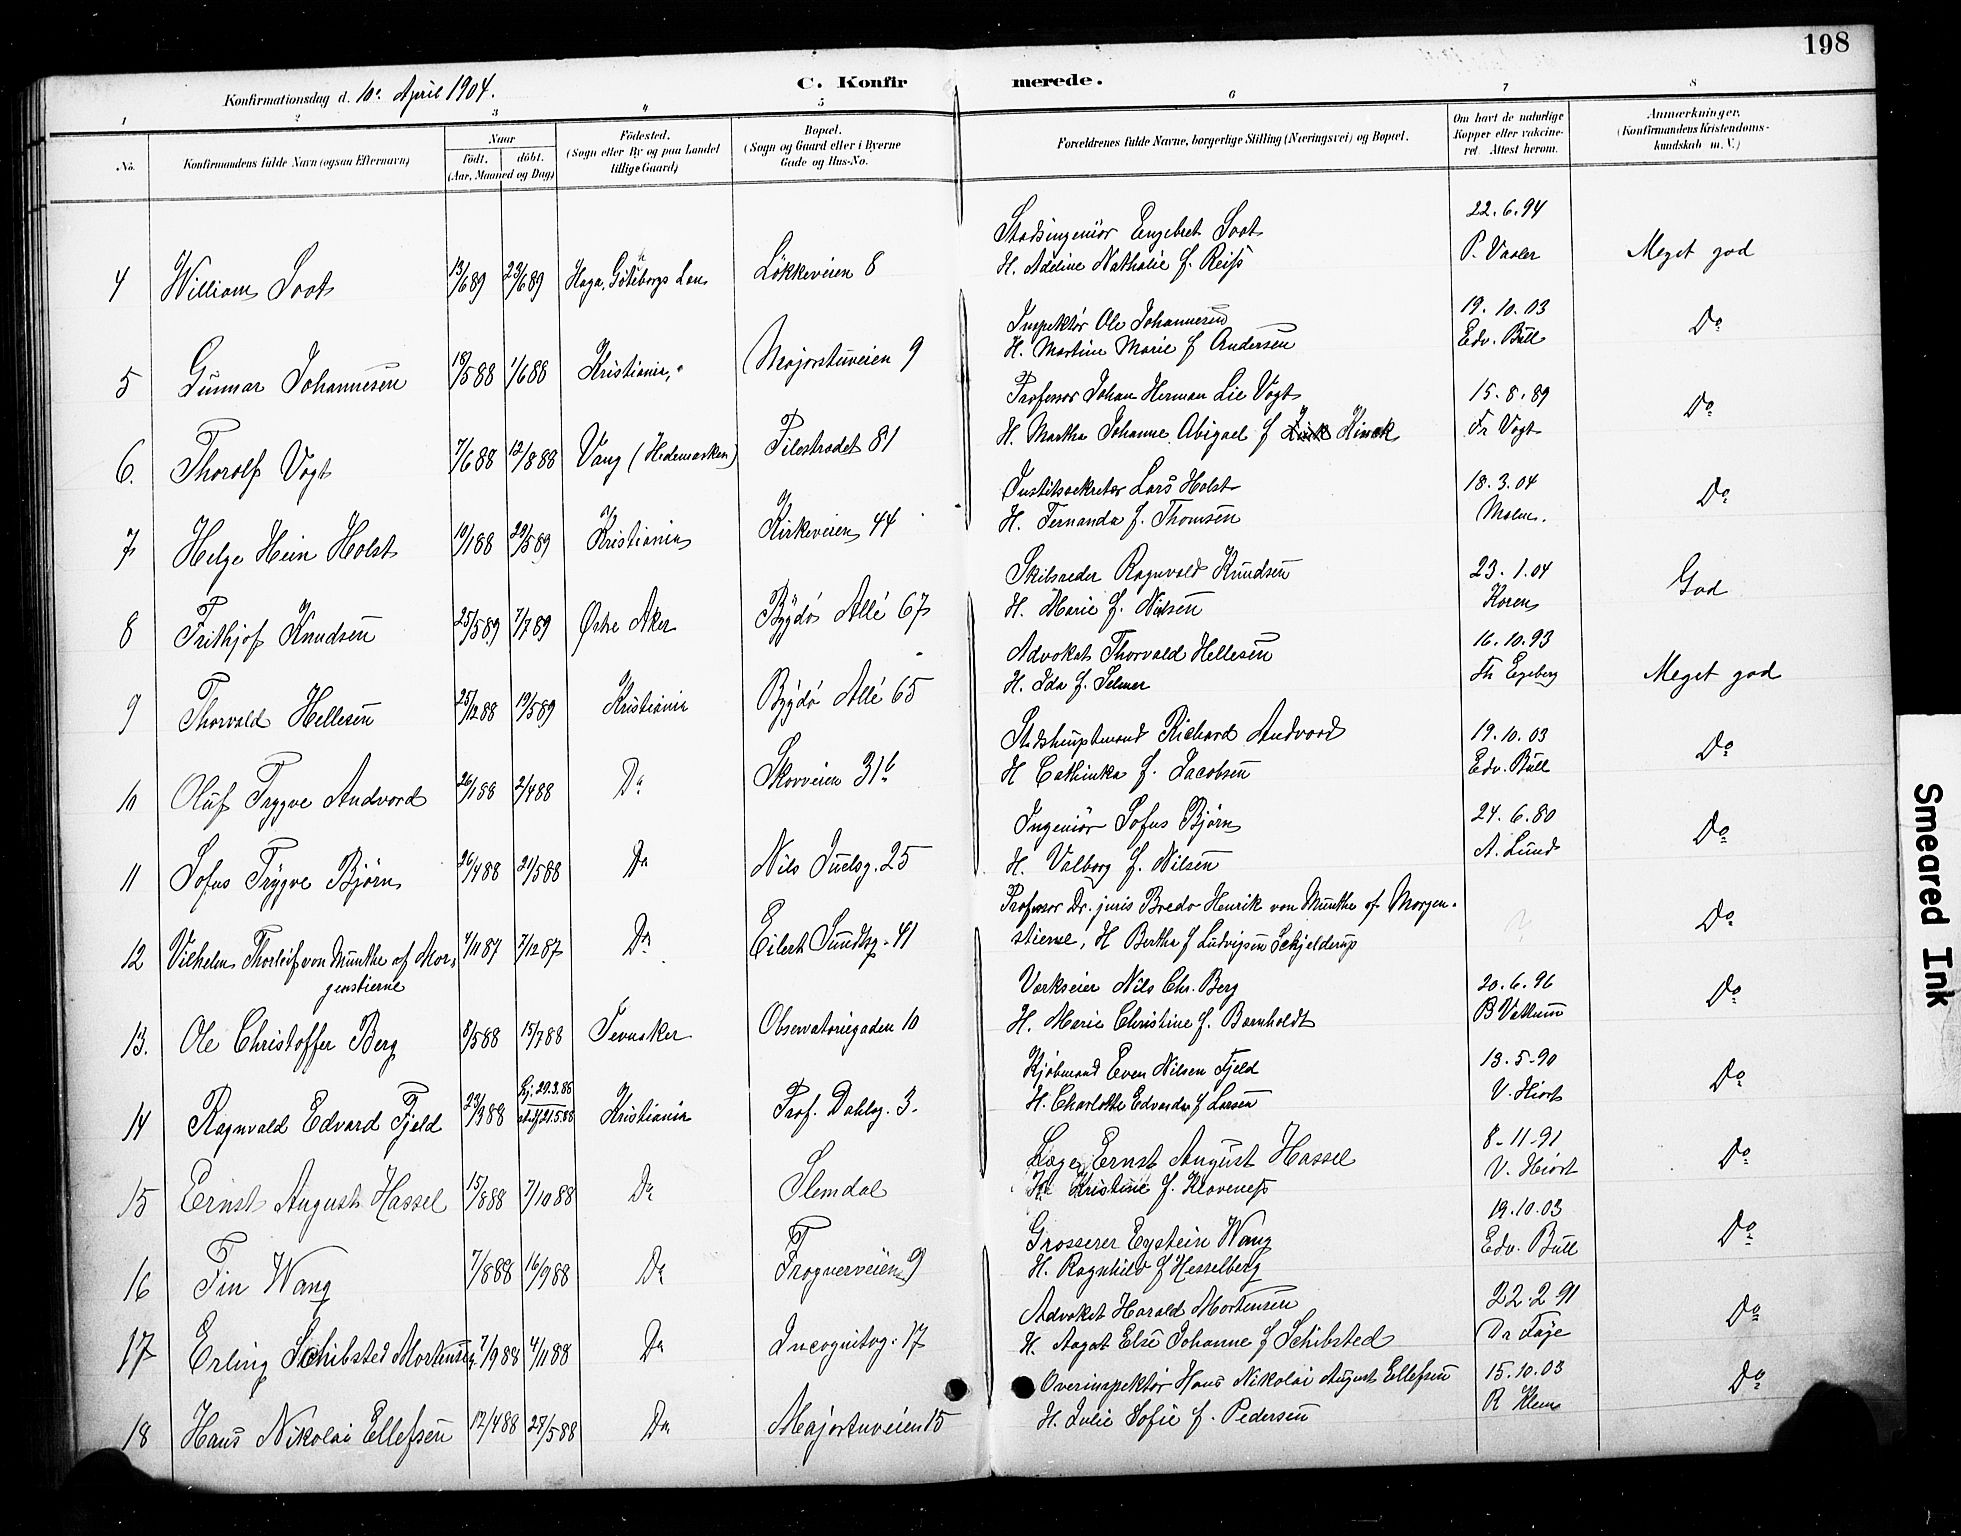 198
Konfirmationsdag d. 10de April 1904.
C. Konfir merede.
1 2 3 4 5 6 7 8
No.
Konfirmandens fulde Navn (ogsaa Efternavn)
Naar
født. døbt.
(Aar, Maaned og Dag)
Fødested.
(Sogn eller By og paa Landet
tillige Gaard)
Bopæl.
(Sogn og Gaard eller i Byerne
Gade og Hus-No.
Forældrenes fulde Navne, borgerlige Stilling (Næringsvei) og Bopæl.
Om havt de naturlige
Kopper eller vakcine-
ret. Attest herom.
Anmærkninger.
(Konfirmandens Kristendoms-
kundskab m. V.)
Stadsingeniør Engebret Soot 22.6.94
4 William Soot 13/6 89 23/6 89 Haga, Göteborgs Len Løkkeveien 8 H. Adeline Nathalie f. Reiss P. Vaaler Meget god
Inspektør Ole Johannesen 19.10.03
5 Gunnar Johannesen 18/5 88 1/6 88 Kristiania Majorstuveien 9 H. Martine Marie f Andersen Edv. Bull Do
Professor Johan Herman Lie Vogt 15.8.89
6. Thorolf Vogt 7/6 88 12/8 88 Vang (Hedemarken) Pilestrædet 81 H. Martha Johanne Abigael f Kinck Fr Vogt Do
Justitssekretær Lars Holst 18.3.04
7 Helge Hein Holst 10/1 88 29/5 89 Kristiania Kirkeveien 44 H. Fernanda f. Thomsen Malm. Do
Skibsreder Ragnvald Knudsen 23.1.04
8 Frithjof Knudsen 25/5 89 7/7 89 Østre Aker Bygdø Allé 67 H. Marie f. Nielsen Koren God
Advokat Thorvald Hellesen 16.10.93
9 Thorvald Hellesen 25/12 88 19/5 89 Kristiania Bygdø Allé 65 H. Ida f. Selmer Th Egeberg Meget god
Stadshauptmand Richard Andvord 19.10.03
10 Oluf Trygve Andvord 26/1 88 2/4 88 Do Skovveien 31b H Cathinka f. Jacobsen Edv. Bull Do
Ingeniør Sofus Bjørn 24.6.80
11 Sofus Trygve Bjørn 26/4 88 21/5 88 Do Nils Juelsg. 25 H. Valborg f. Nilsen A. Lund Do
Professor Dr. juris Bredo Henrik von Munthe af Morgen-
12 Vilhelm Thorleif von Munthe af Mor- 4/11 87 7/12 87 Do Eilert Sundtsg. 41 stierne, H Bertha f Ludvigsen Schjelderup Do
genstierne
Værkseier Nils Chr. Berg 20.6.96
13. Ole Christoffer Berg 8/5 88 15/7 88 Tevnaker Observatoriegaden 10 H. Marie Christine f. Barnholdt B Vatlum Do
Kjøbmand Even Nilsen Fjeld 13.5.90
14 Ragnvald Edvard Fjeld 23/3 88 Hj. 29.3.88 21.5.88 Kristiania Prof. Dahlsg. 3. H. Charlotte Edvarda f Larsen V. Hiort Do
Læge Ernst August Hassel 8-11-91
15 Ernst August Hassel 15/8 88 7/10 88 Do Slemdal H. Kristine f. Klaveness V. Hiort Do
Grosserer Eystein Wang 19.10.03
16 Fin Wang 7/8 88 16/9 88 Do Frognerveien 9 H. Ragnhild f Hesselberg Edv. Bull Do
Advokat Harald Mortensen 22.2.91
17 Erling Schibsted Mortensen 7/9 88 4/11 88 Do Incognitog. 17 H. Aagot Else Johanne f Schibsted Dr Faye Do
Overinspektør Hans Nikolai August Ellefsen 15.10.03
18 Hans Nikolai Ellefsen 12/4 88 27/5 88 Do Majorstuveien 15 H. Julie Sofie f. Pedersen R Klem Do
Smeared Ink